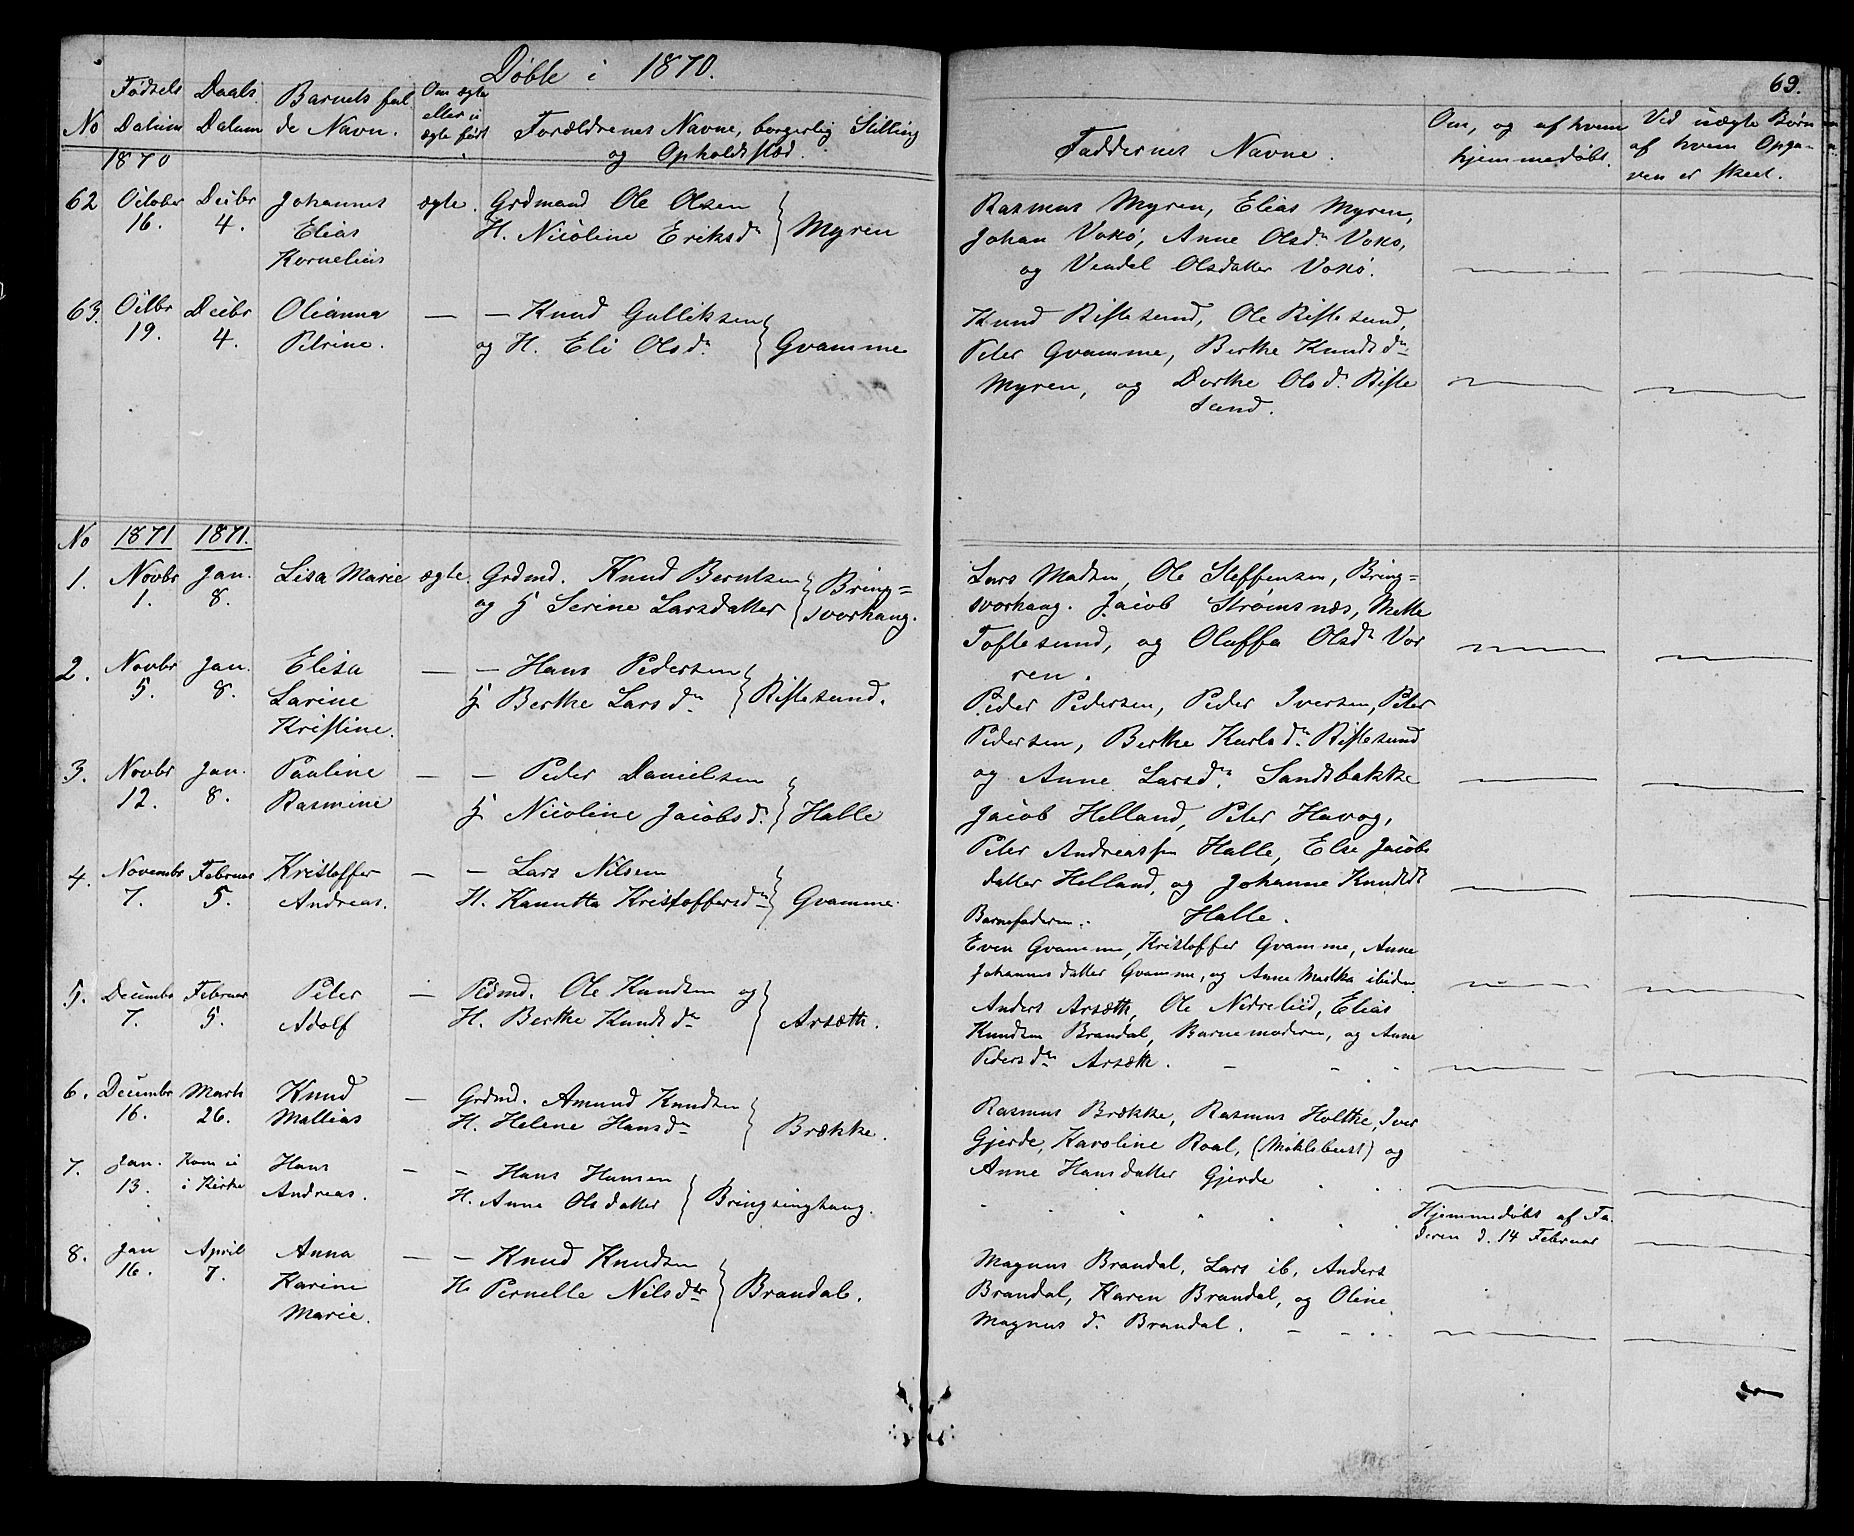 Døbte i 1870.
69.
No
Fødsels Datum
Daabs Datum
Barnets ful
de Navn.
Om ægte
eller u
ægte født
Forældrenes Navne, borgerlig Stilling
og Opholdssted.
Faddernes Navne.
Om, og af hvem
hjemmedøbt.
Ved uægte Børn
af hvem Opga-
ven er skeet.
1870
62 October 16. Decbr 4. Johannes Elias Kornelius ægte. Grdmand Ole Olsen
H. Nicoline Eriksdr } Myren
Rasmus Myren, Elias Myren,
Johan Voksø, Anne Olsdr Voksø,
og Vendel Olsdatter Voksø.
63. Octbr 19. Decbr 4. Olianna Petrine. — — Knud Gulliksen
og H. Eli Olsdr } Gvamme
Knud Riftesund, Ole Riftesund,
Peter Gvamme, Berthe Knudsdr
Myren, og Dorthe Olsdr Rifte
sund.
No 1871 1871.
1. Novbr 1. Jan. 8. Lisa Marie ægte. Grdmd. Knud Berntsen
og H Serine Larsdatter } Bring=
svorhaug.
Lars Madsen, Ole Steffensen, Bring=
svorhaug. Jacob Strømsnæs, Mette
Toftesund, og Oluffa Olsdr Vor
ren.
2. Novbr 5. Jan. 8. Elisa Larine Kristine. — — Hans Pedersen
H Berthe Larsdr } Riftesund.
Peder Pedersen, Peder Iversen, Peter
Pedersen, Berthe Karlsdr Riftesund
og Anne Larsdr Sandsbakke
3. Novbr 12. Jan. 8. Pauline Rasmine — — Peder Danielsen
H Nicoline Jacobsdr } Halle
Jacob Helland, Peter Havog,
Peter Andreassen Halle, Else Jacobs
datter Helland, og Johanne Knudsdr
Halle.
4. Novembr 7. Februar 5. Kristoffer Andreas. — — Lars Nilsen
H. Kanutta Kristoffersdr } Gvamme.
Barnefaderen.
Even Gvamme, Kristoffer Gvamme, Anne
Johannesdatter Gvamme, og Anne Martha ibidem
5. Decembr 7. Februar 5. Peter Adolf — Pldmd. Ole Knudsen og
H. Berthe Knudsdr } Arsæth.
Anders Arsæth, Ole Nedrelid, Elias
Knudsen Brandal, Barnemoderen, og Anne
Pedersdr Arsæth.
6. Decembr 16. Marts 26. Knud Mathias — Grdmd. Amund Knudsen
H. Helene Hansdr } Brække.
Rasmus Brække, Rasmus Holthe, Iver
Gjerde, Karoline Roal, (Møklebust) og
Anne Hansdatter Gjerde
7. Jan. 13. Kom ei i Kirke Hans Andreas. — — Hans Hansen
H. Anne Olsdatter } Bringsinghaug.
Hjemmedøbt af Fa
deren d. 14 Februar
8. Jan 16. April 7. Anna Karine Marie. — — Knud Knudsen
H. Pernelle Nilsdtr } Brandal.
Magnus Brandal, Lars ib, Anders
Brandal, Karen Brandal, og Oline
Magnusdr Brandal.